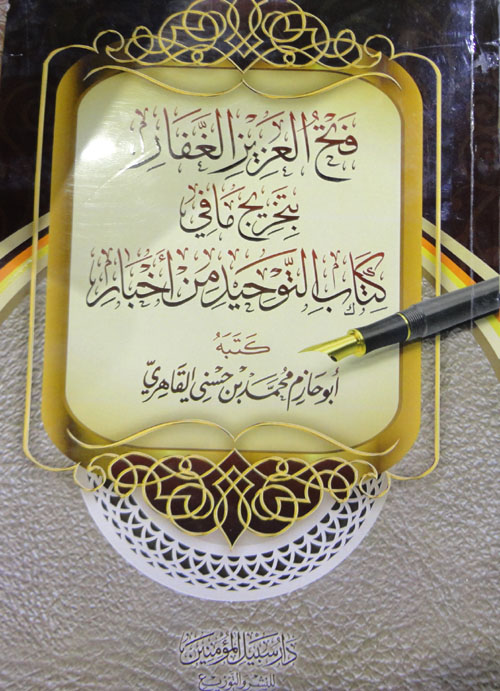 فتح العزيز الغفار
بتخريج ما في
كتاب التوحيد من أخبار
كتبه
أبو حازم محمد بن حسني القاهري
دار سبيل المؤمنين
للنشر والتوزيع